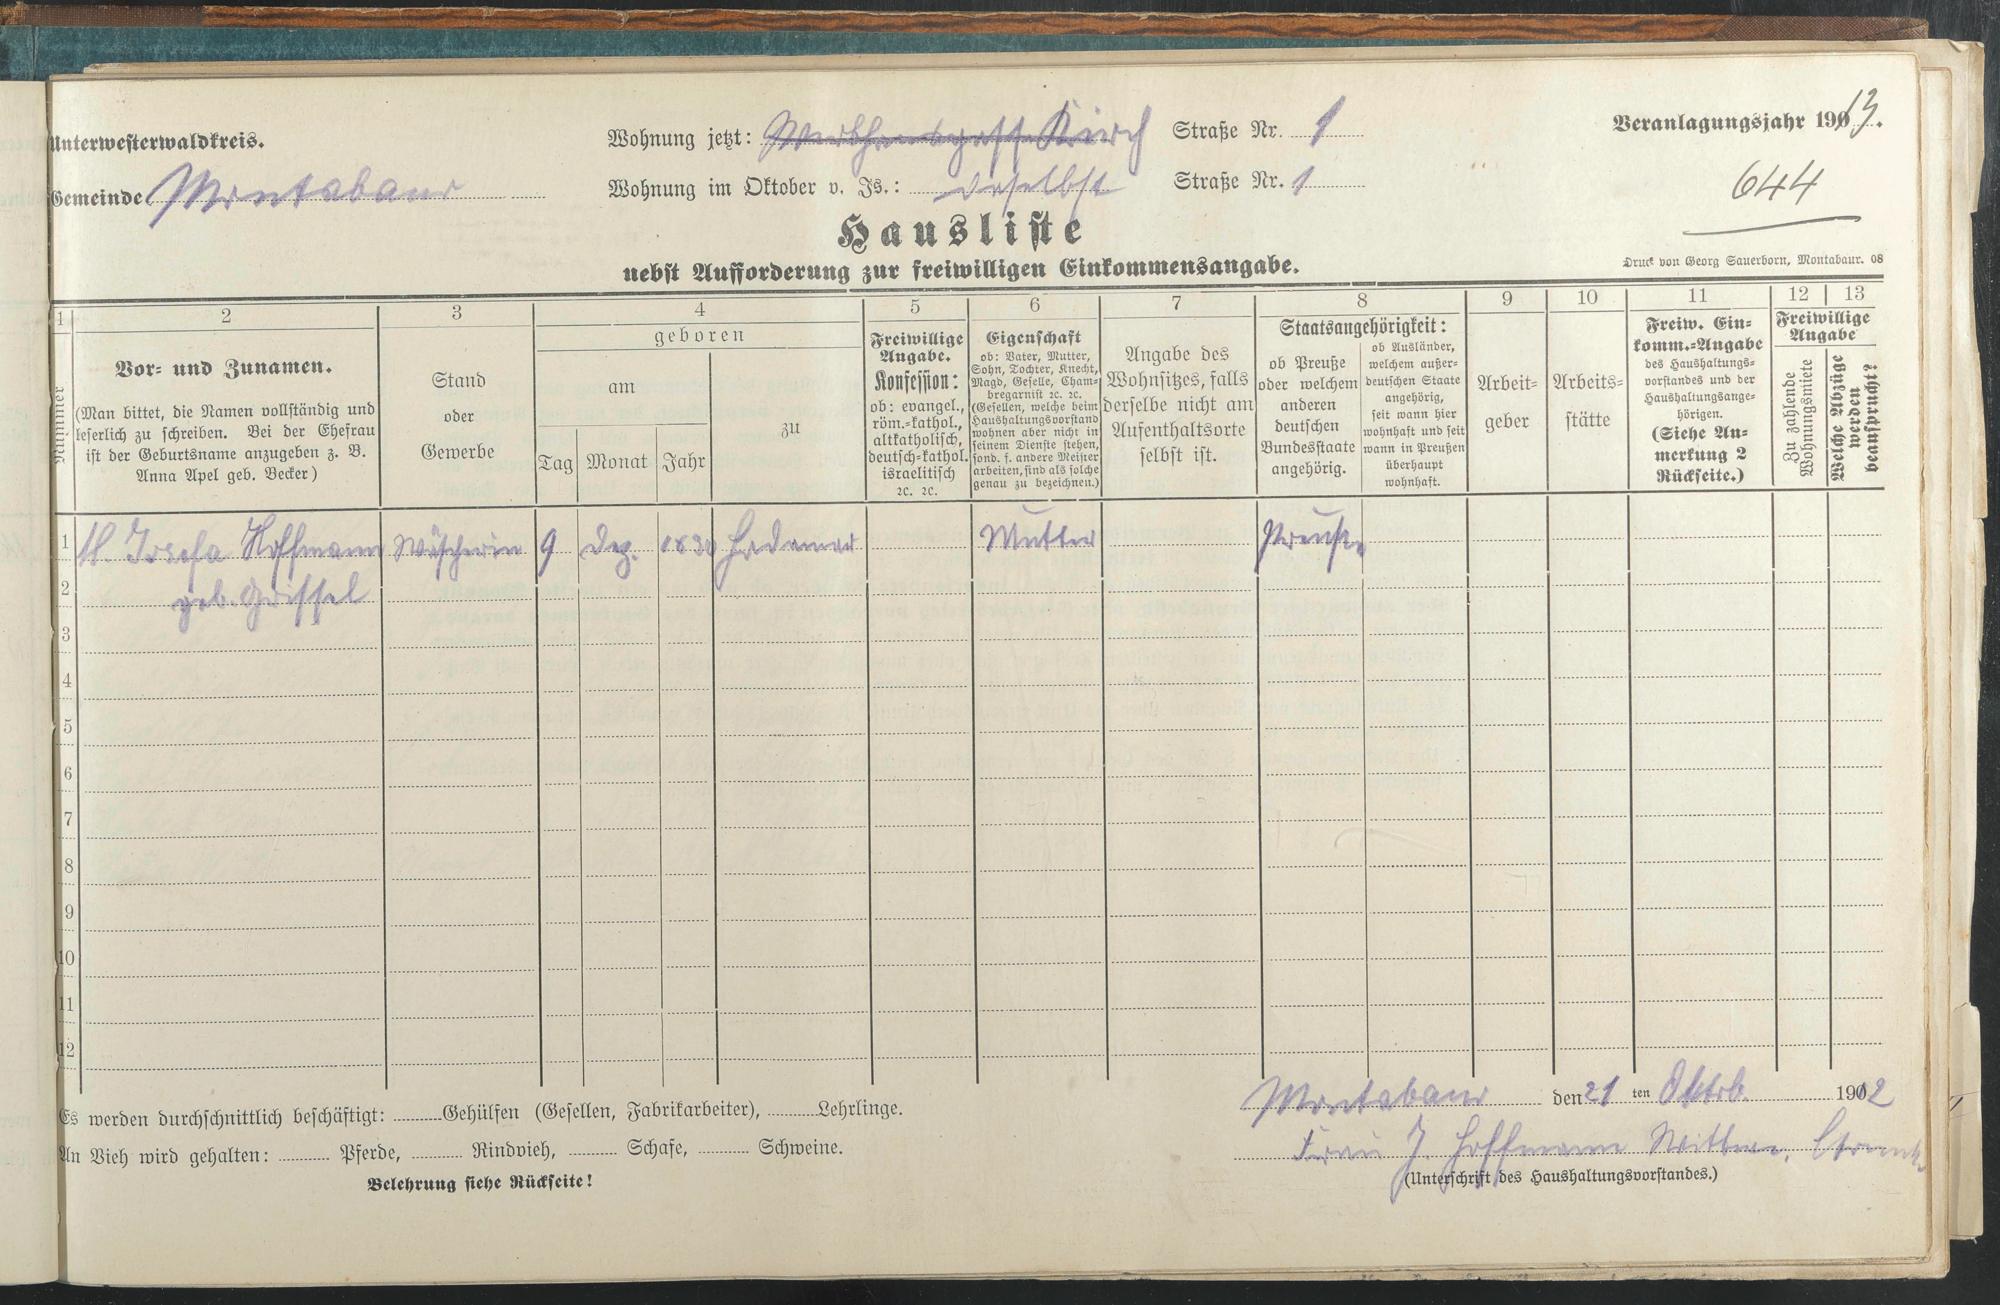 Unterwesterwaldkreis.
Wohnung jetzt: Kirch Straße Nr. 1
Veranlagungsjahr 1913.
Gemeinde Montabaur
Wohnung im Oktober v. Js.: daselbst Straße Nr. 1
644
Hausliste
nebst Aufforderung zur freiwilligen Einkommensangabe.
Druck von Georg Sauerborn, Montabaur. 08
1 2 3 4 5 6 7 8 9 10 11 12 13
Nummer
Vor- und Zunamen.
(Man bittet, die Namen vollständig und
leserlich zu schreiben. Bei der Ehefrau
ist der Geburtsname anzugeben z. B.
Anna Apel geb. Becker)
Stand
oder
Gewerbe
geboren
am
Tag Monat Jahr
zu
Freiwillige
Angabe.
Konfession:
ob: evangel.,
röm.-kathol.,
altkatholisch,
deutsch-kathol.
israelitisch
ꝛc. ꝛc.
Eigenschaft
ob: Vater, Mutter,
Sohn, Tochter, Knecht,
Magd, Geselle, Cham-
bregarnist ꝛc. ꝛc.
(Gesellen, welche beim
Haushaltungsvorstand
wohnen aber nicht in
seinem Dienste stehen,
sond. f. andere Meister
arbeiten, sind als solche
genau zu bezeichnen.)
Angabe des
Wohnsitzes, falls
derselbe nicht am
Aufenthaltsorte
selbst ist.
Staatsangehörigkeit:
ob Preuße
oder welchem
anderen
deutschen
Bundesstaate
angehörig.
ob Ausländer,
welchem außer-
deutschen Staate
angehörig,
seit wann hier
wohnhaft und seit
wann in Preußen
überhaupt
wohnhaft.
Arbeit-
geber
Arbeits-
stätte
Freiw. Ein-
komm.-Angabe
des Haushaltungs-
vorstandes und der
Haushaltungsange-
hörigen.
(Siehe An-
merkung 2
Rückseite.)
Freiwillige
Angabe
Zu zahlende
Wohnungsmiete
Welche Abzüge
werden
gewünscht?
1 M. Josefa Hoffmann Wäscherin 9 Dez. 1830 Hadamar Mutter Preuße
2 geb.
3
4
5
6
7
8
9
10
11
12
Es werden durchschnittlich beschäftigt: Gehülfen (Gesellen, Fabrikarbeiter), Lehrlinge.
An Vieh wird gehalten: Pferde, Rindvieh, Schafe, Schweine.
Belehrung siehe Rückseite!
Montabaur den 21 ten Oktob. 1912
Frau J. Hoffmann Wittwe.
(Unterschrift des Haushaltungsvorstandes.)